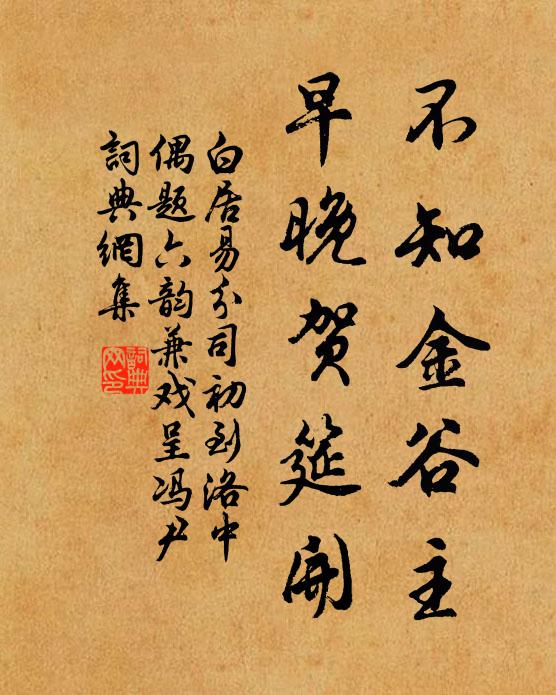 不知金谷主
早晚贺筵開
白居易分司初到洛中
偶题六韵兼戏呈冯尹
詞典網集
詞典
网印